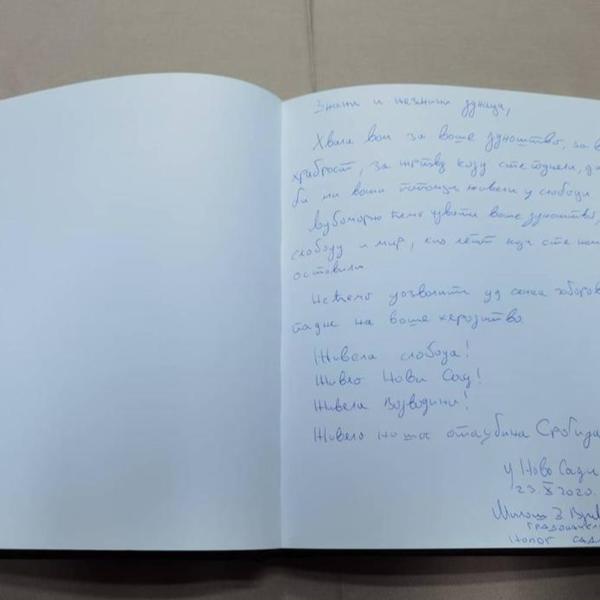 Знани и незнани јунаци,
Хвала вам за ваше јунаштво, за в
храброст, за жртву коју сте поднели, да
би ми ваши потомци живели у слободи
Љубоморно ћемо чувати ваше јунаштво,
слободу и мир, које сте нам
оставили
Нећемо дозволити да сенка заборав
падне на ваше херојство.
Живела слобода!
Живео Нови Сад!
Живела Војводина!
Живела наша отаџбина Србија
У Новом Саду
23. X 2020.
Милош
градоначел
Новог Сад